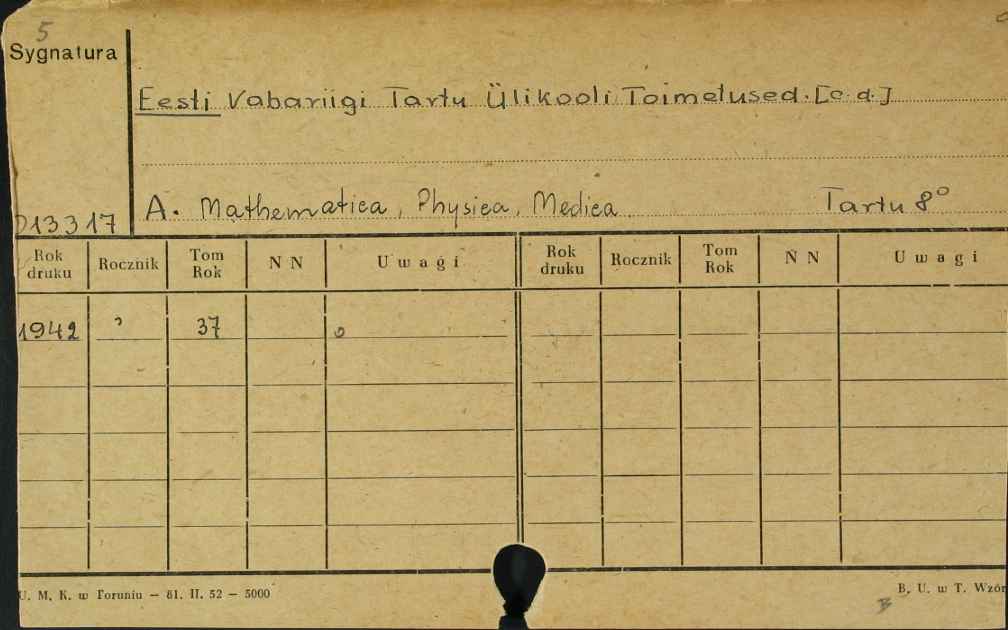 5
Sygnatura
Eesti Vabariigi Tartu Ülikooli Toimetused. [c.d.]
A. Mathematica, Physica, Medica Tartu 8°
013317
Rok druku Rocznik Tom Rok N N Uwagi Rok druku Rocznik Tom Rok N N Uwagi
1942 37
U. M. K. w Toruniu — 81. II. 52 — 5000
B. U. w T. Wzór
B